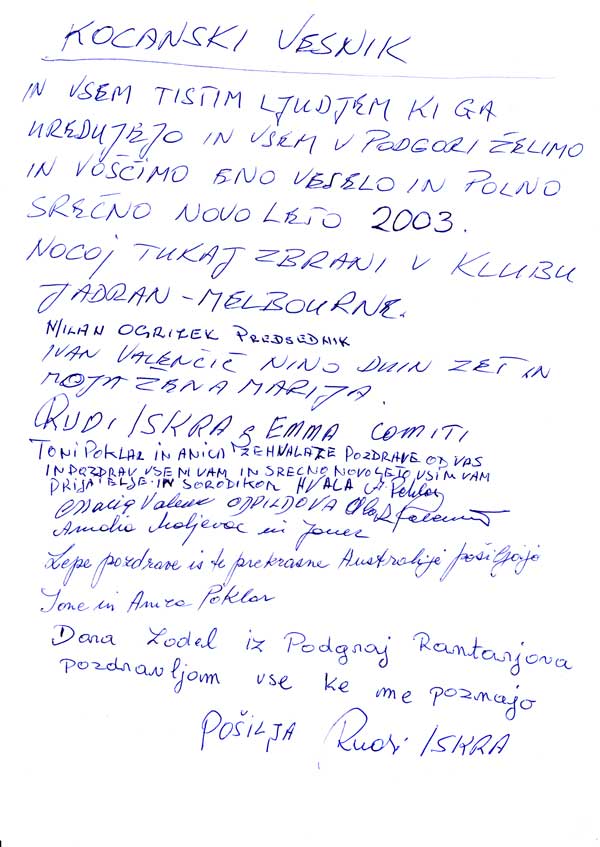 KOCANSKI VESNIK
IN VSEM TISTIM LJUDJEM KI GA
UREDUJEJO IN VSEM V PODGORI ŽELIMO
IN VOŠČIMO ENO VESELO IN POLNO
SREČNO NOVO LETO 2003.
NOCOJ TUKAJ ZBRANI V KLUBU
JADRAN - MELBOURNE.
MILAN OGRIZEK PREDSEDNIK
IVAN VALENČIČ NINO ZET IN
MOJA ŽENA MARIJA.
RUDI ISKRA & EMMA COMITI
TONI POKLAR IN ANICA POZDRAVE OD VAS
IN POZDRAV VSEM VAM IN SRECNO NOVO LETO VSIM VAM
IN SORODIKOM HVALA A. Poklar
Valenc
Amalia Maljevac in Janez
Lepe pozdrave is te prekrasne Australije pošiljajo
Tone in Anica Poklar
Dara Zodel iz Podgraj Rantarjova
pozdravljam vse ke me poznajo
POŠILJA Rudi ISKRA